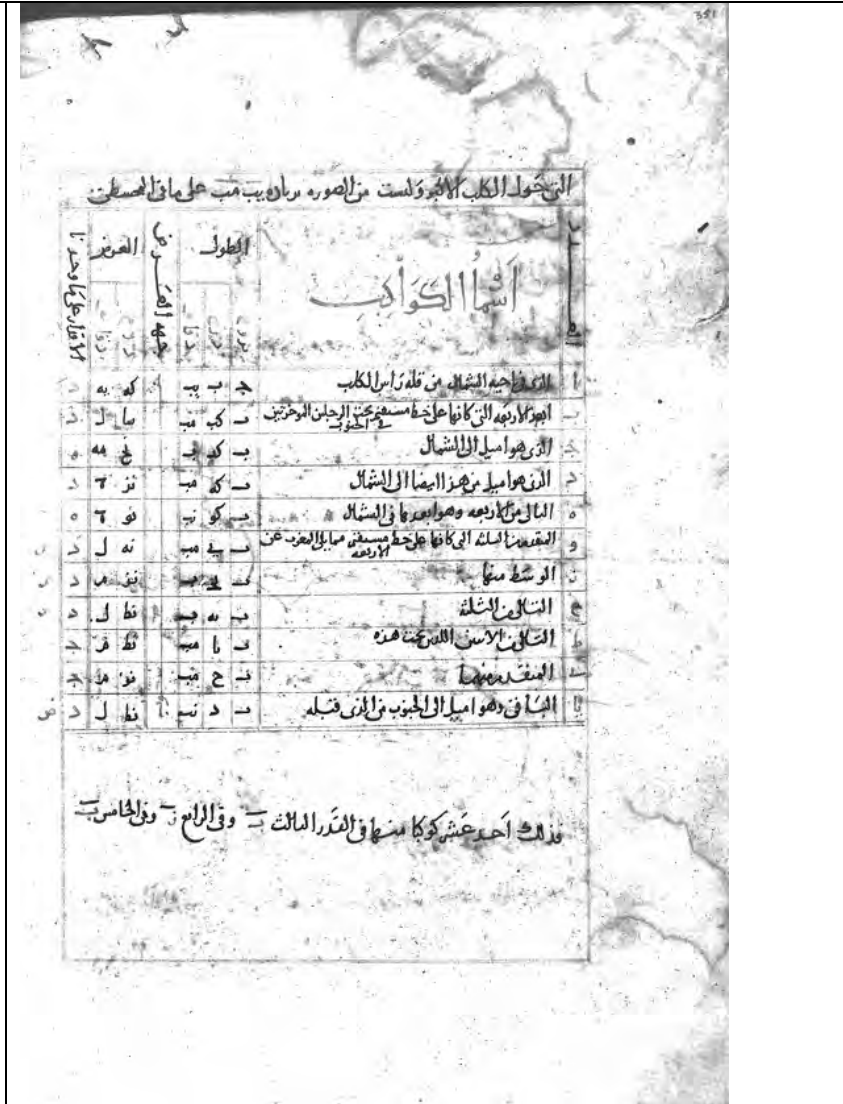 351
التى حول الكلب الاكبر وليست من الصوره بزياده يب مب على ما فى المجسطى
اسما الكواكب
الطول
جهه العرض
العرض
الاقدار على ما وجدنا
ا الذى فى ناحيه الشمال من قله راس الكلب ج ب يب كه يه د
ب ابعد الاربعه التى كانها على خط مستقيم تحت الرجلين الموخرتين فى الجنوب ب كب مب سا ل د
ج الذى هو اميل الى الشمال ب كد نح مه
د الذى هو اميل من هذا ايضا الى الشمال ب كه مب نز د
ه التالى من الاربعه وهو ابعدها فى الشمال ب كو نب نو ه
و المتقدم من الثلثه التى كانها على خط مستقيم مما يلى المغرب عن الاربعه ب مب نه ل د
ز الوسط منها ب نز م د
ح التالى من الثلثه ب نط ل د
ط التالى من الاثنين اللذين تحت هذه ب يا مب نط م ج
ى المتقدم منهما ب ح مب نز م ج
يا الباقى وهو اميل الى الجنوب من الذى قبله ب د نب نط ل د
فذلك احد عشر كوكبا منها فى القدر الثالث ب وفى الرابع ز وفى الخامس ب